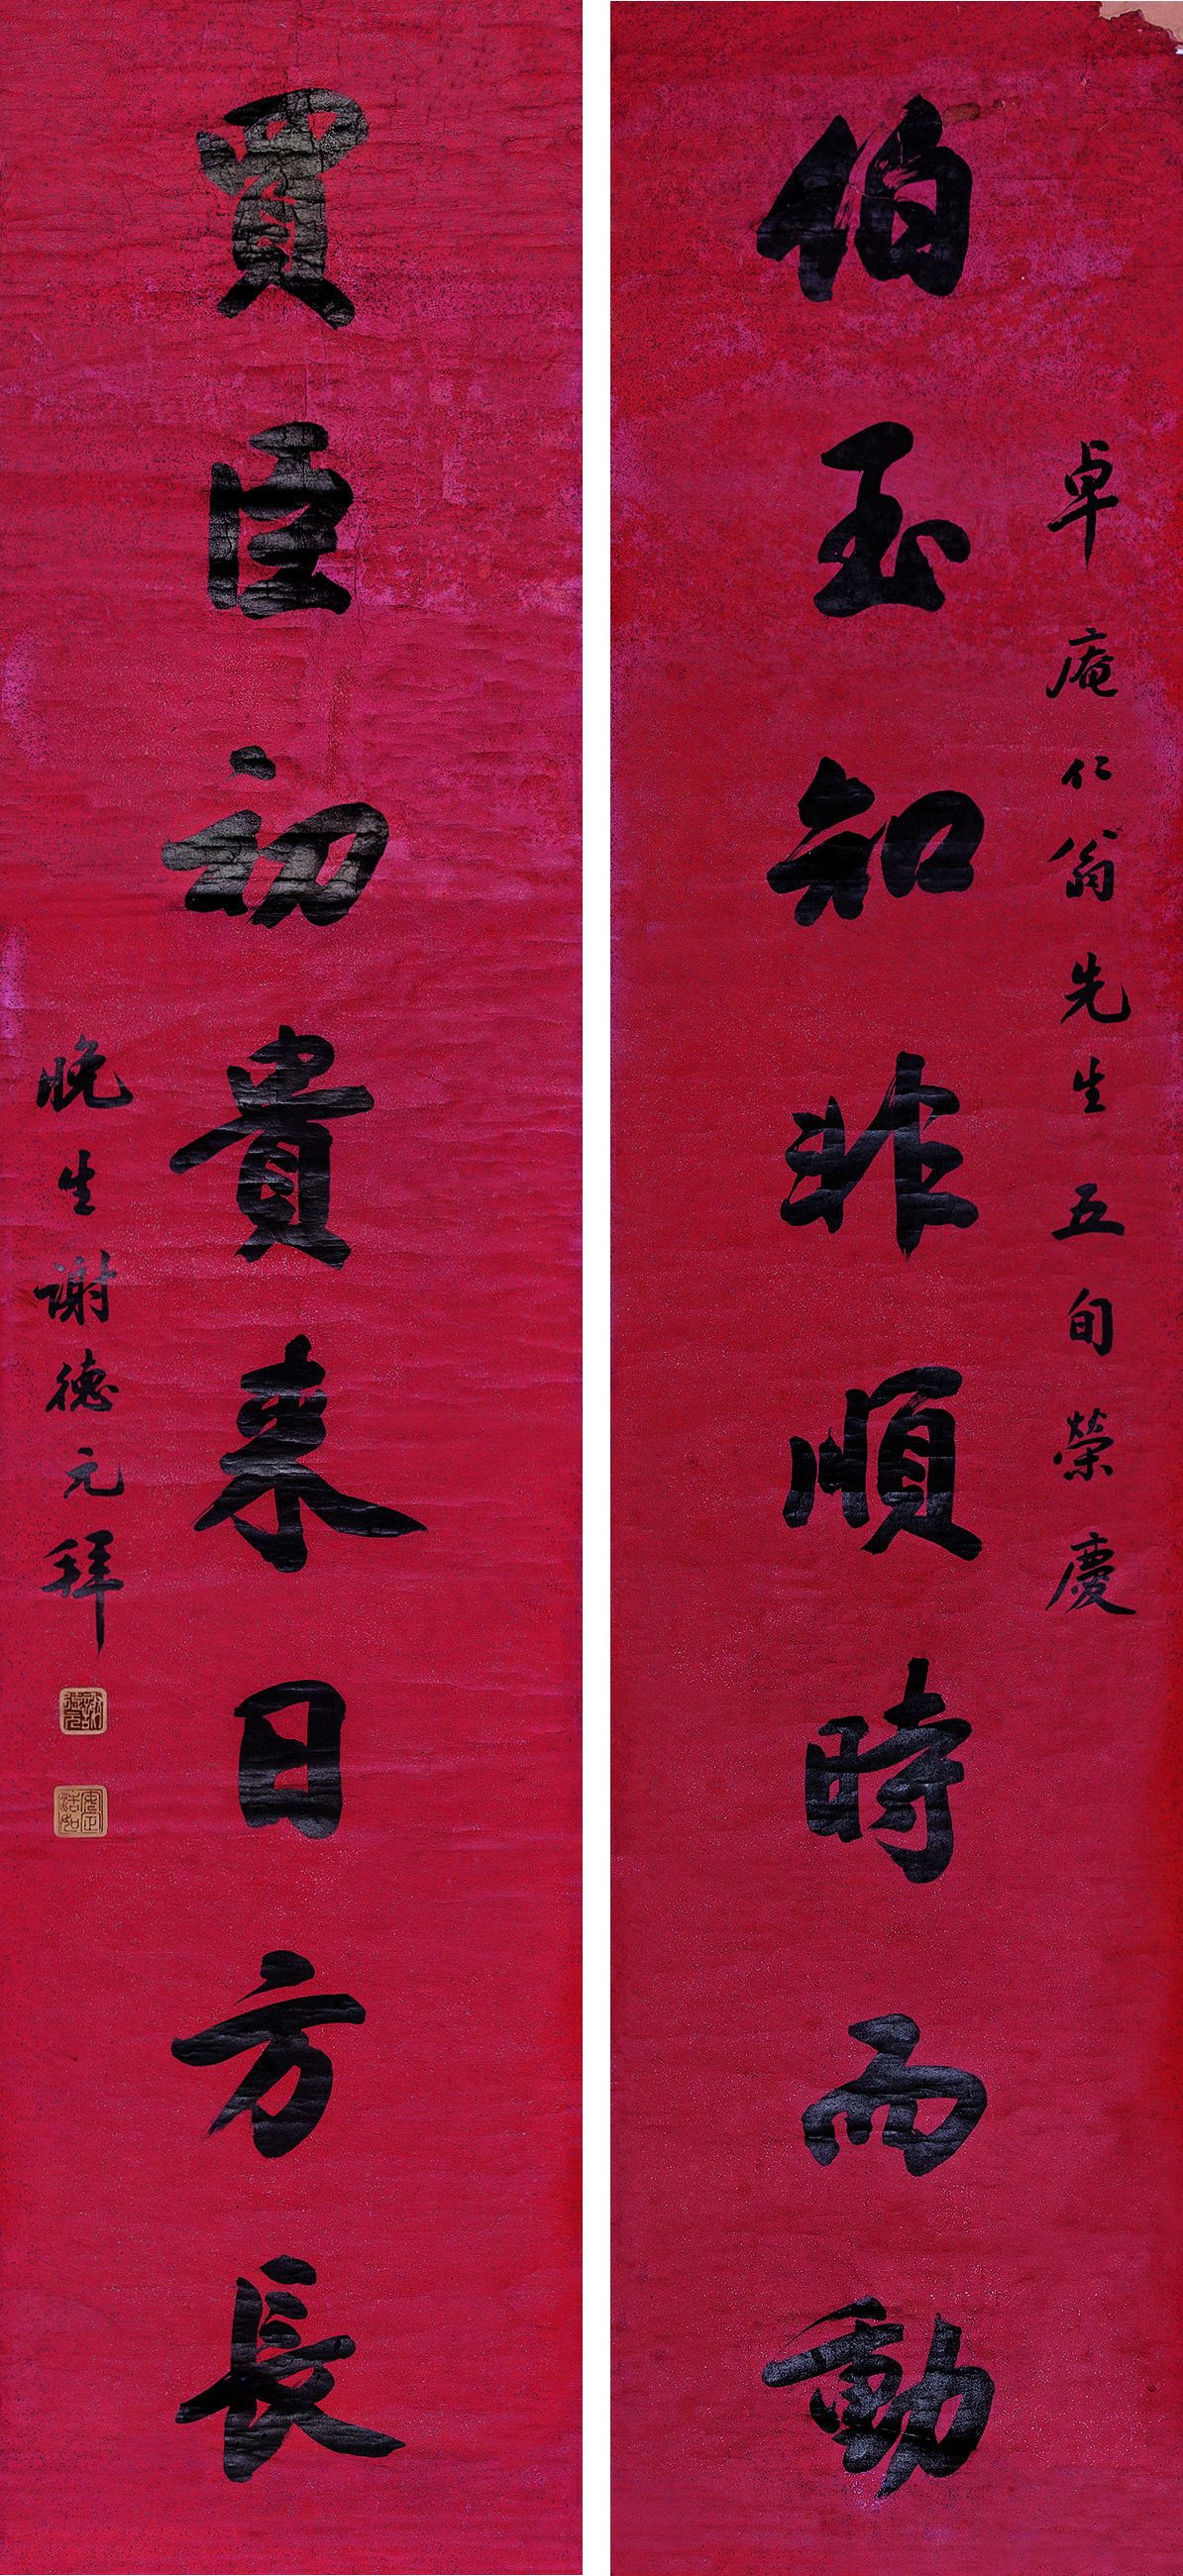 卓庵仁翁先生五旬榮慶
伯玉知非順時而動
買臣初貴来日方長
晚生谢德元拜